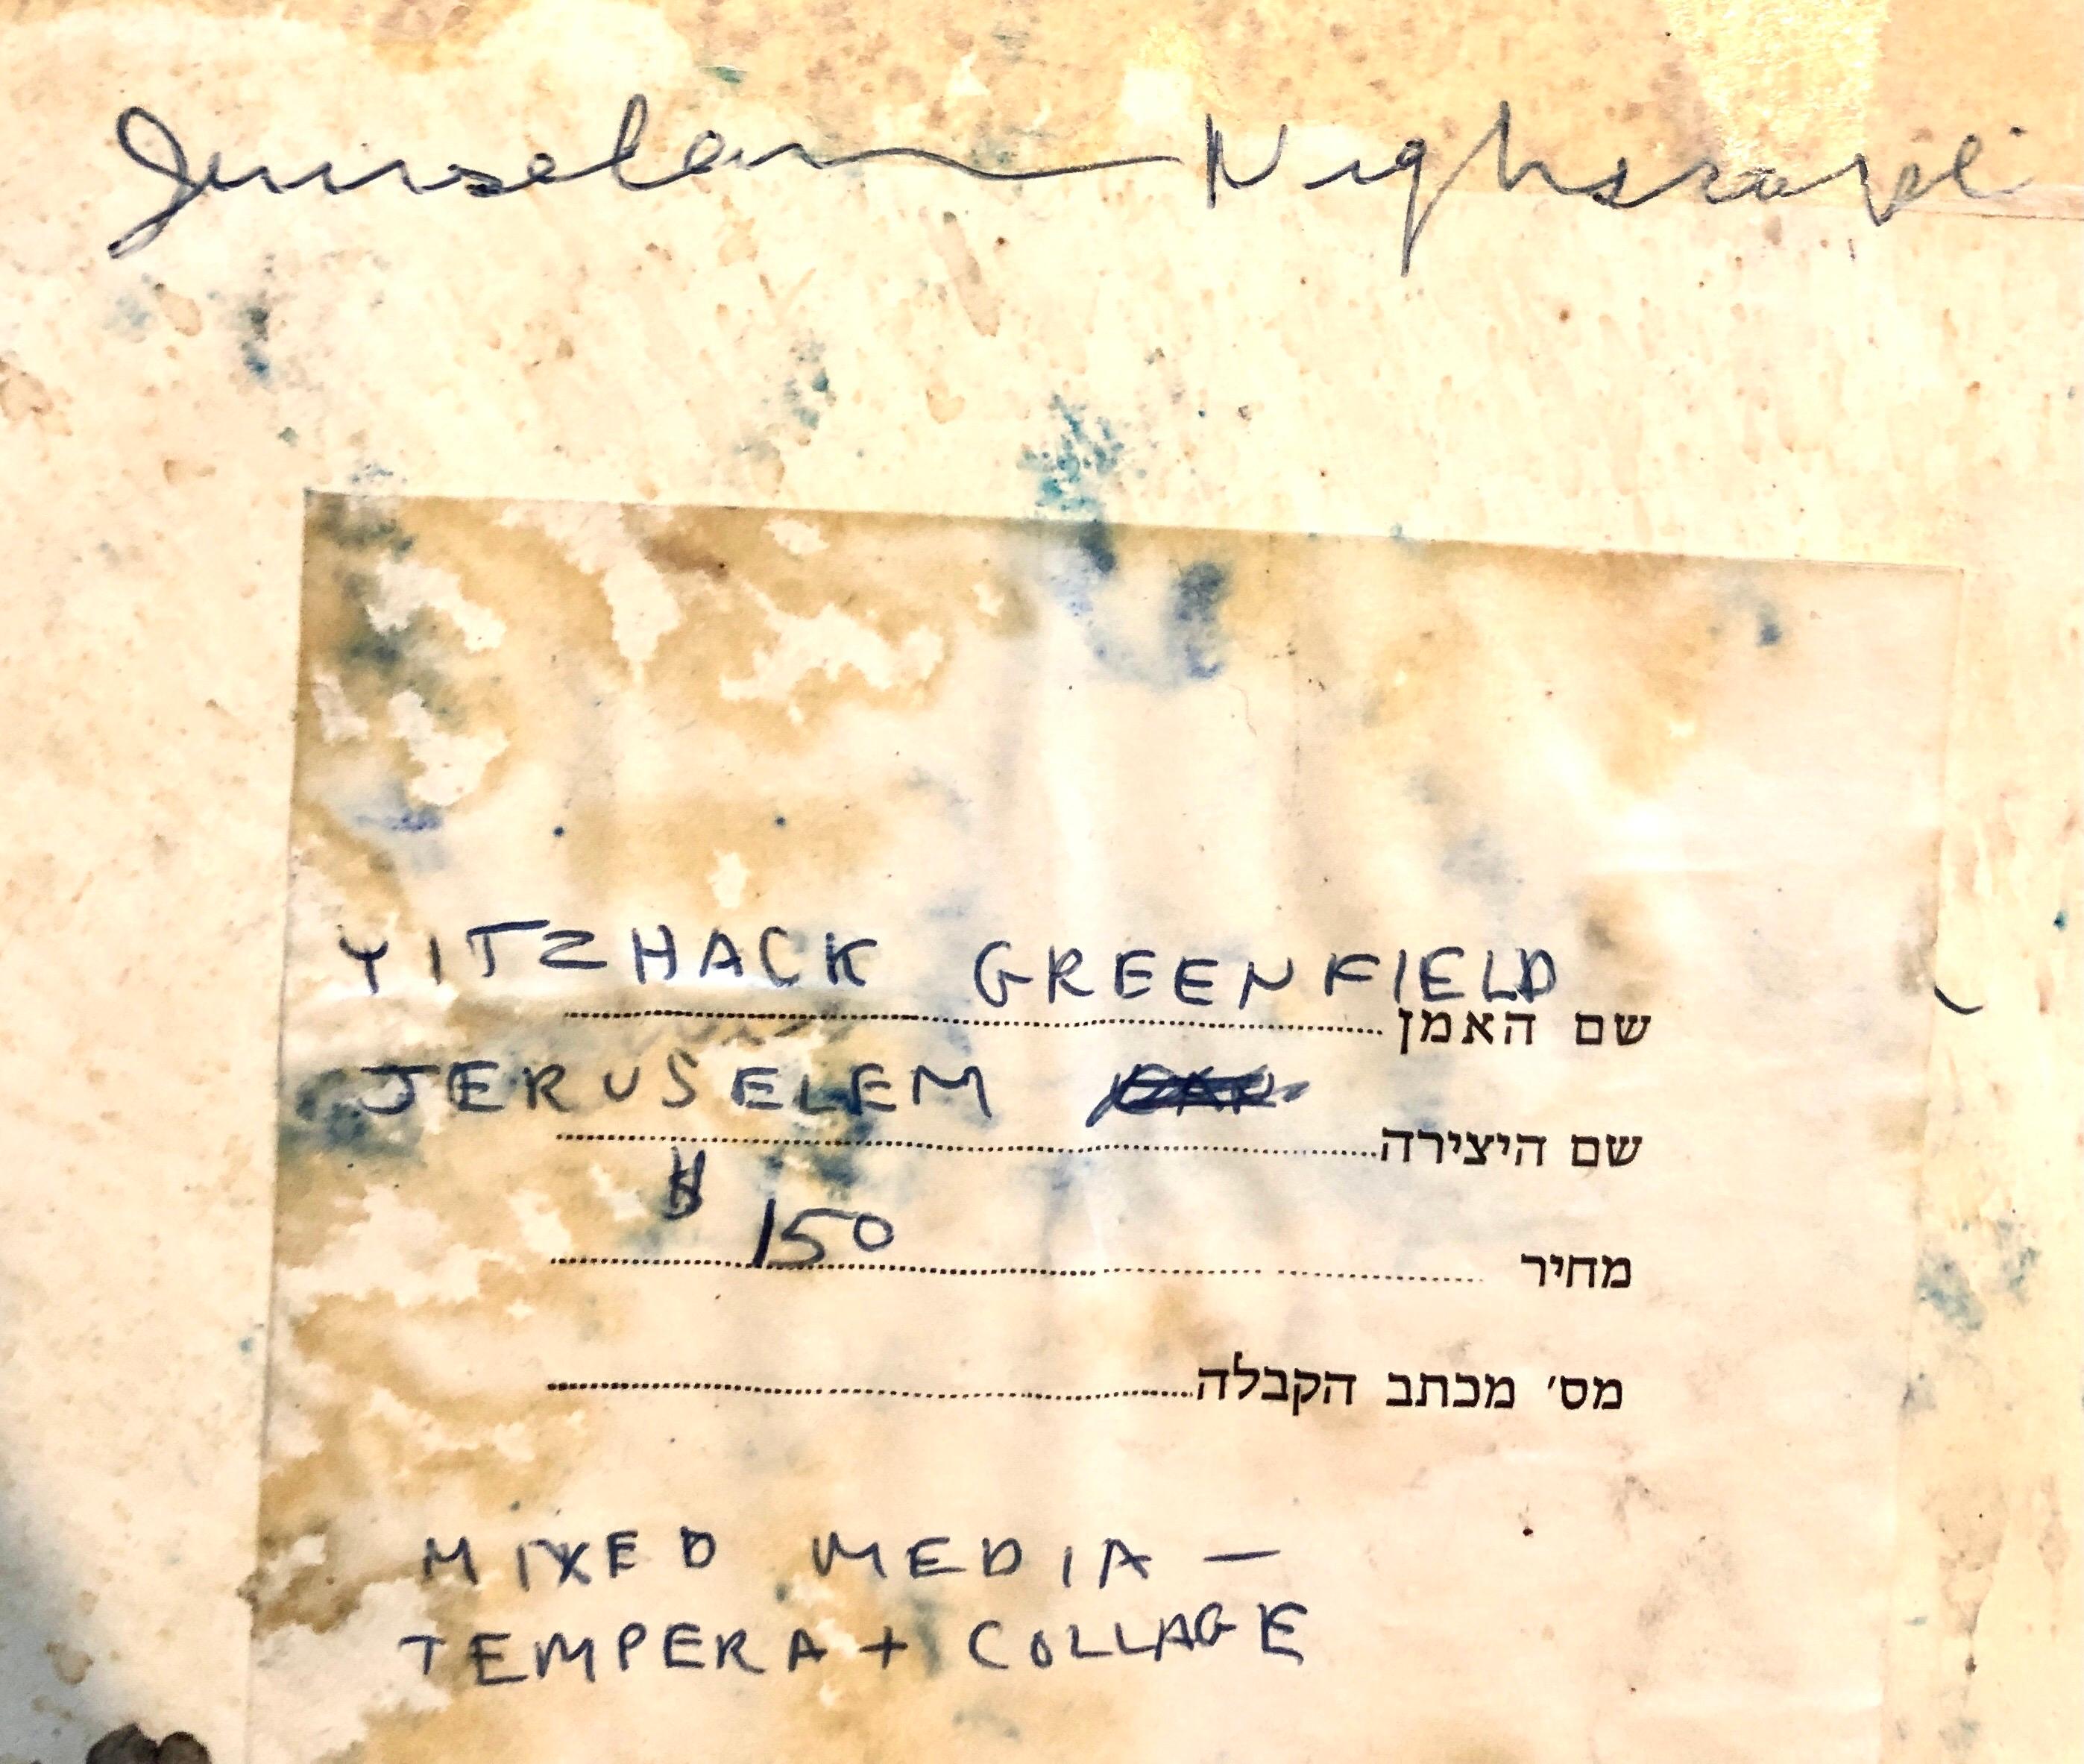 Jeruselem Nighscape
YITZHACK GREENFIELD
שם האמן
JERUSELEM
שם היצירה
$ 150
מחיר
מס׳ מכתב הקבלה
MIXED MEDIA —
TEMPERA + COLLAGE